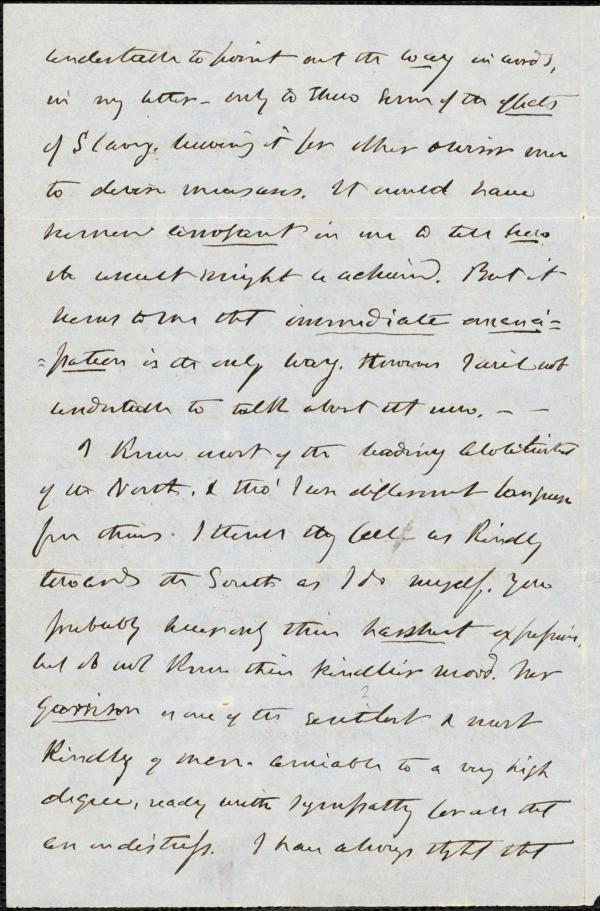 undertake to point out the way in words,
in my letter – only to show some of the effects
of Slavery. leaving it for other & wiser men
to devise measures. It would have
been arrogant in me to tell how
the result might be achieved. But it
seems to me that immediate emanci=
=pation is the only way. However I will not
undertake to talk about that now. – –
I know most of the leading Abolitionists
of the North, & tho' I use different language
from theirs. I think they feel as Kindly
towards the South as I do myself. You
probably hear only their harshest expressions,
but do not Know their kindlier mood. Mr
Garrison is one of the gentlest & most
Kindly of men. amiable to a very high
degree, ready with sympathy for all that
are in distress. I have always thght that